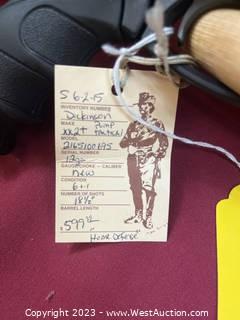 S 6-2-15
INVENTORY NUMBER
Dickinson
MAKE
XX2T Pump Tactical
SERIAL NUMBER
12ga
GAUGE/CHOKE — CALIBER
New
CONDITION
6+1
NUMBER OF SHOTS
18½"
BARREL LENGTH
$599
"Home Defense"
Copyright 2023 - WestAuction.com